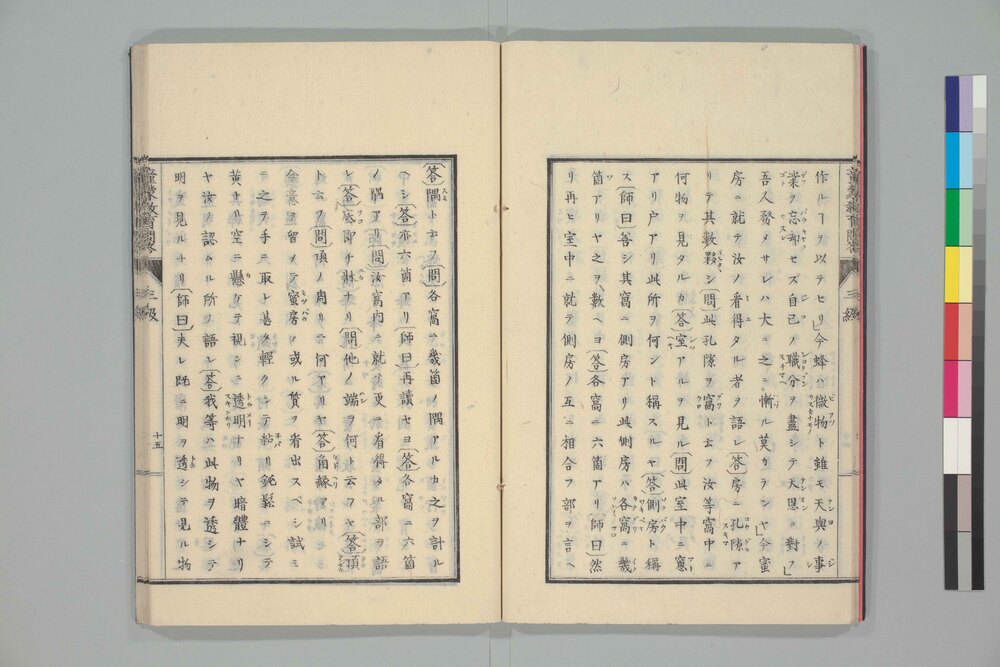 作ルヿヲ以テセリ」今蜂ハ微物ト雖モ天與ノ事
業ヲ忘却セズ自己ノ職分ヲ盡シテ天恩ニ對フ」
吾人務メサレハ大ニ之ニ慚ル莫カランヤ」今蜜
房ニ就テ汝ノ看得タル者ヲ語レ〔答〕房ニ孔隙ア
リテ其數夥シ〔問〕此孔隙ヲ窩ト云フ汝等窩中ニ
何物ヲ見タルカ〔答〕室アルヲ見ル〔問〕此室中ニ窻
アリ戸アリ此所ヲ何ント稱スルヤ〔答〕側房ト稱
ス〔師曰〕善シ其窩ニ側房アリ此側房ハ各窩ニ幾
箇アリヤ之ヲ數ヘヨ〔答〕各窩ニ六箇アリ〔師曰〕然
リ再ヒ室中ニ就テ側房ノ互ニ相合フ部ヲ言ヘ
〔答〕隅ト云フ〔問〕各窩ニ幾箇ノ隅アルカ之ヲ計ル
ヘシ〔答〕亦六箇アリ〔師曰〕再讀セヨ〔答〕各窩ニ六箇
ノ隅アリ〔問〕汝窩内ニ就テ更ニ看得タル部ヲ語
レ〔答〕底即チ財ナリ〔問〕他ノ端ヲ何ト云フヤ〔答〕頂
ト云フ〔問〕頂ノ周リニ何アリヤ〔答〕角緣アリ
今意ヲ留メテ蜜房ノ或ル質ヲ看出スベシ試ミ
ニ之ヲ手ニ取レ甚タ輕クシテ粘リ鈍鬆ニシテ
黄ナリ空ニ懸ケテ視ヨ透明ナリヤ暗體ナリ
ヤ汝ノ認ムル所ヲ語レ〔答〕我等ハ此物ヲ透シテ
明ヲ見ルナリ〔師曰〕夫レ既ニ明ヲ透シテ見ル物
三級
十五